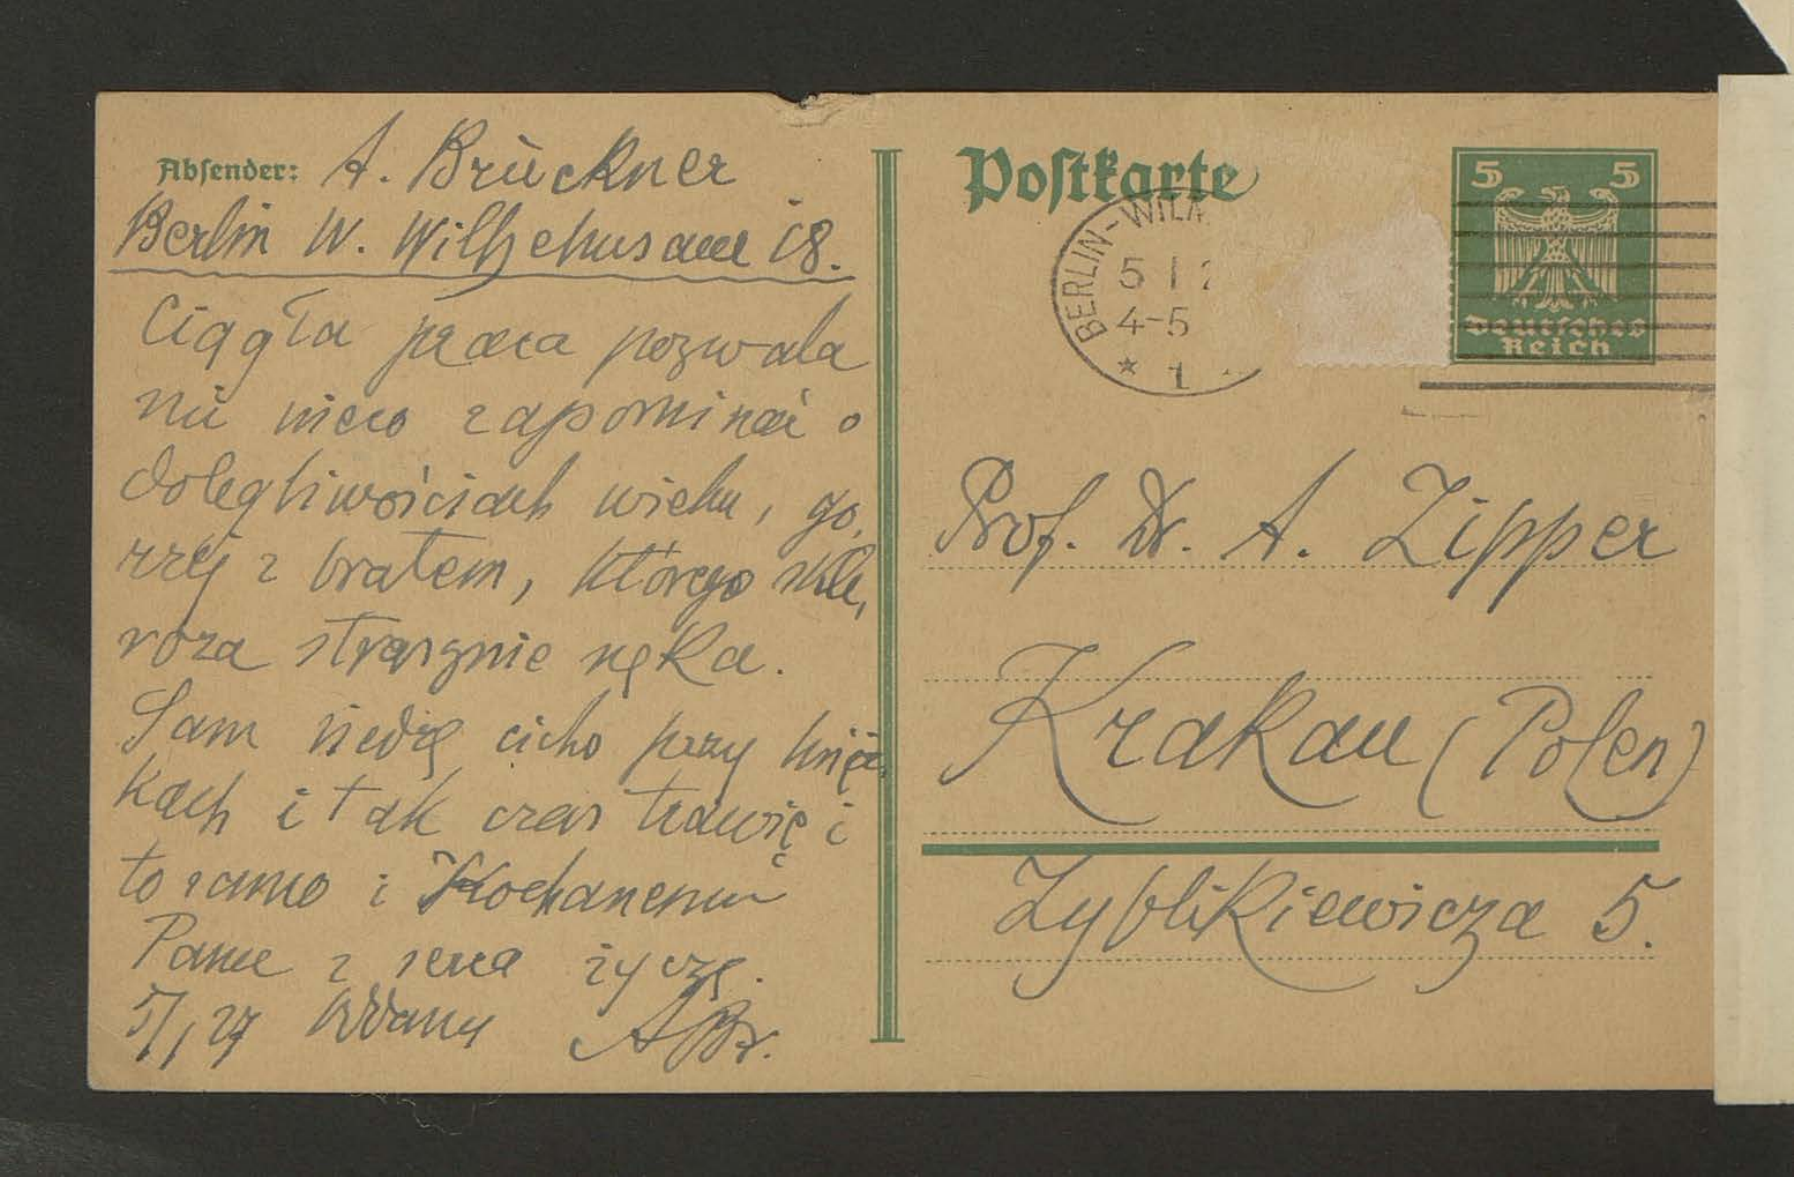 Absender: A. Brückner
Berlin W. Wilhelmsaue 18.
Ciągła praca pozwala
mi nieco zapominać o
dolegliwościach wieku, go,
rzej z bratem, którego skle,
roza strasznie nęka.
Sam siedzę cicho przy książ,
kach i tak czas trawię i
to samo i Kochanemu
Panu z serca życzę.
5/1 27 Oddany ABr.
Postkarte
BERLIN-WILM
5 1 2
4-5
* 1
5 5
Deutsches
Reich
Prof. Dr. A. Zipper
Krakau (Polen)
Zyblikiewicza 5.